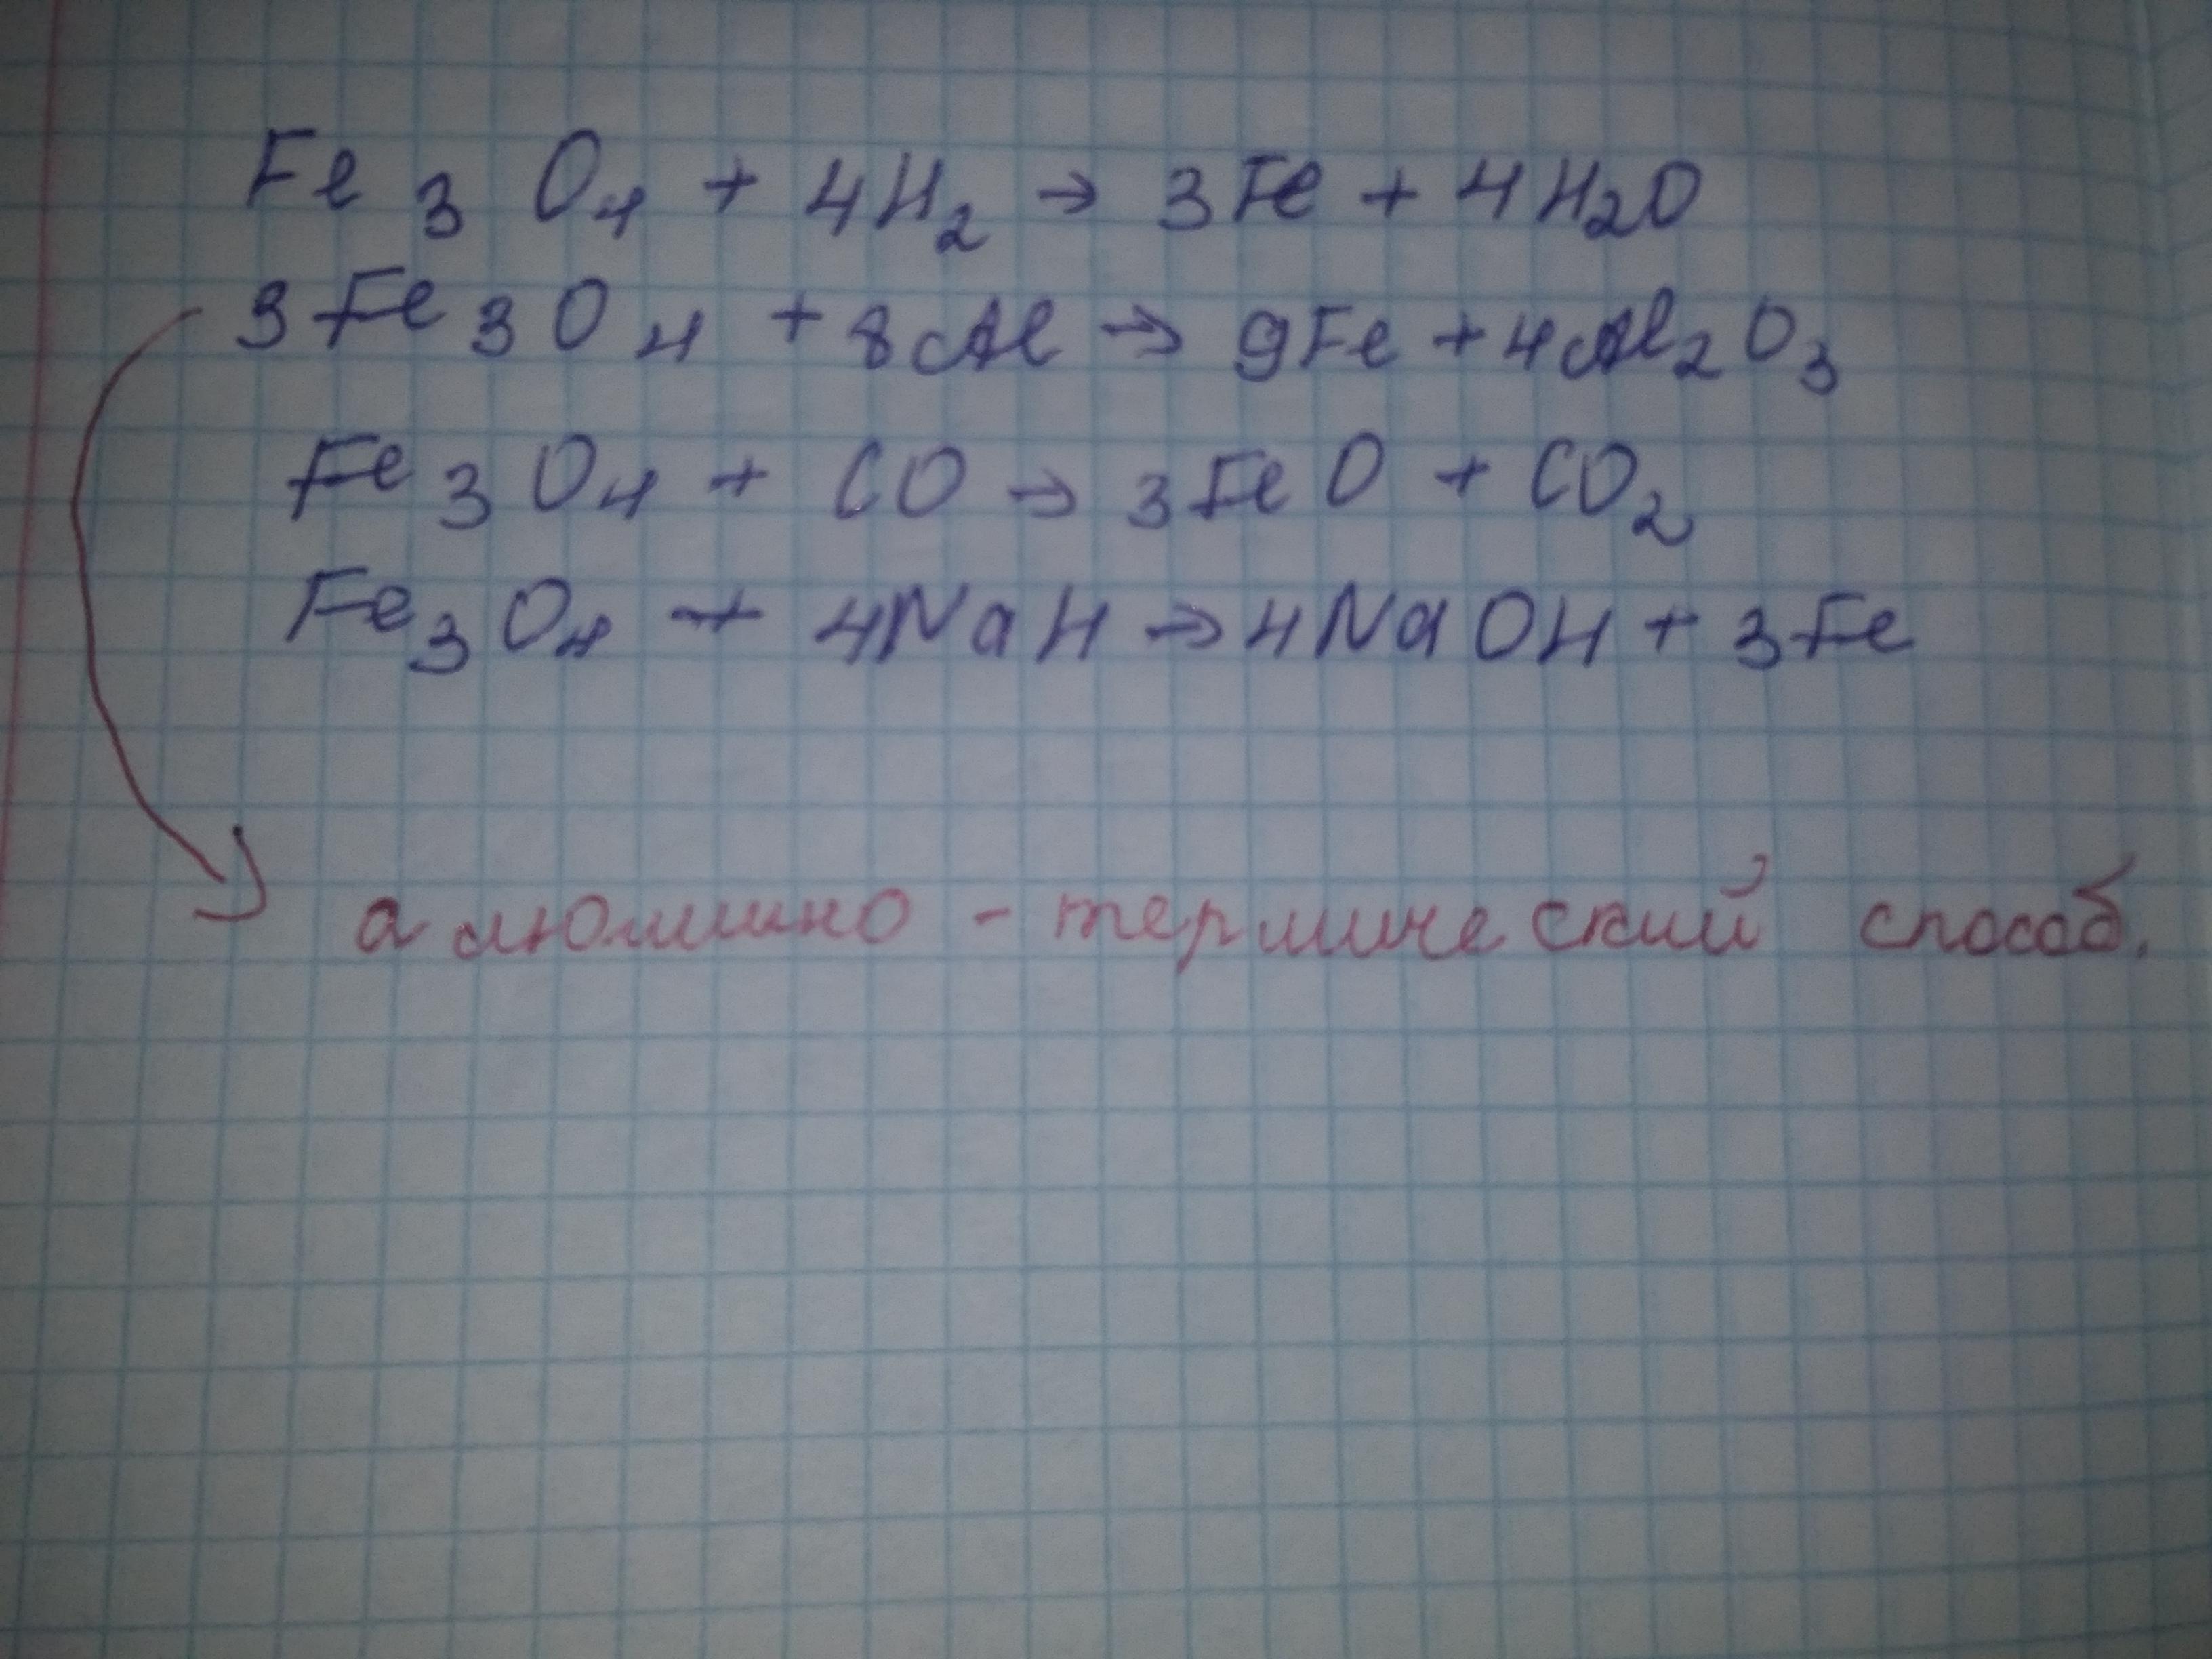 Fe₃O₄ + 4H₂ → 3Fe + 4H₂O
3Fe₃O₄ + 8Al → 9Fe + 4Al₂O₃
Fe₃O₄ + CO → 3FeO + CO₂
Fe₃O₄ + 4NaH → 4NaOH + 3Fe
алюмино-термический способ.